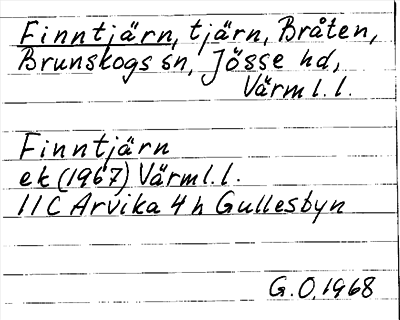 Finntjärn, tjärn, Bråten,
Brunskogs sn, Jösse hd,
Värml.l.
Finntjärn
ek (1967) Värml.l.
11C Arvika 4h Gullesbyn
G.O. 1968